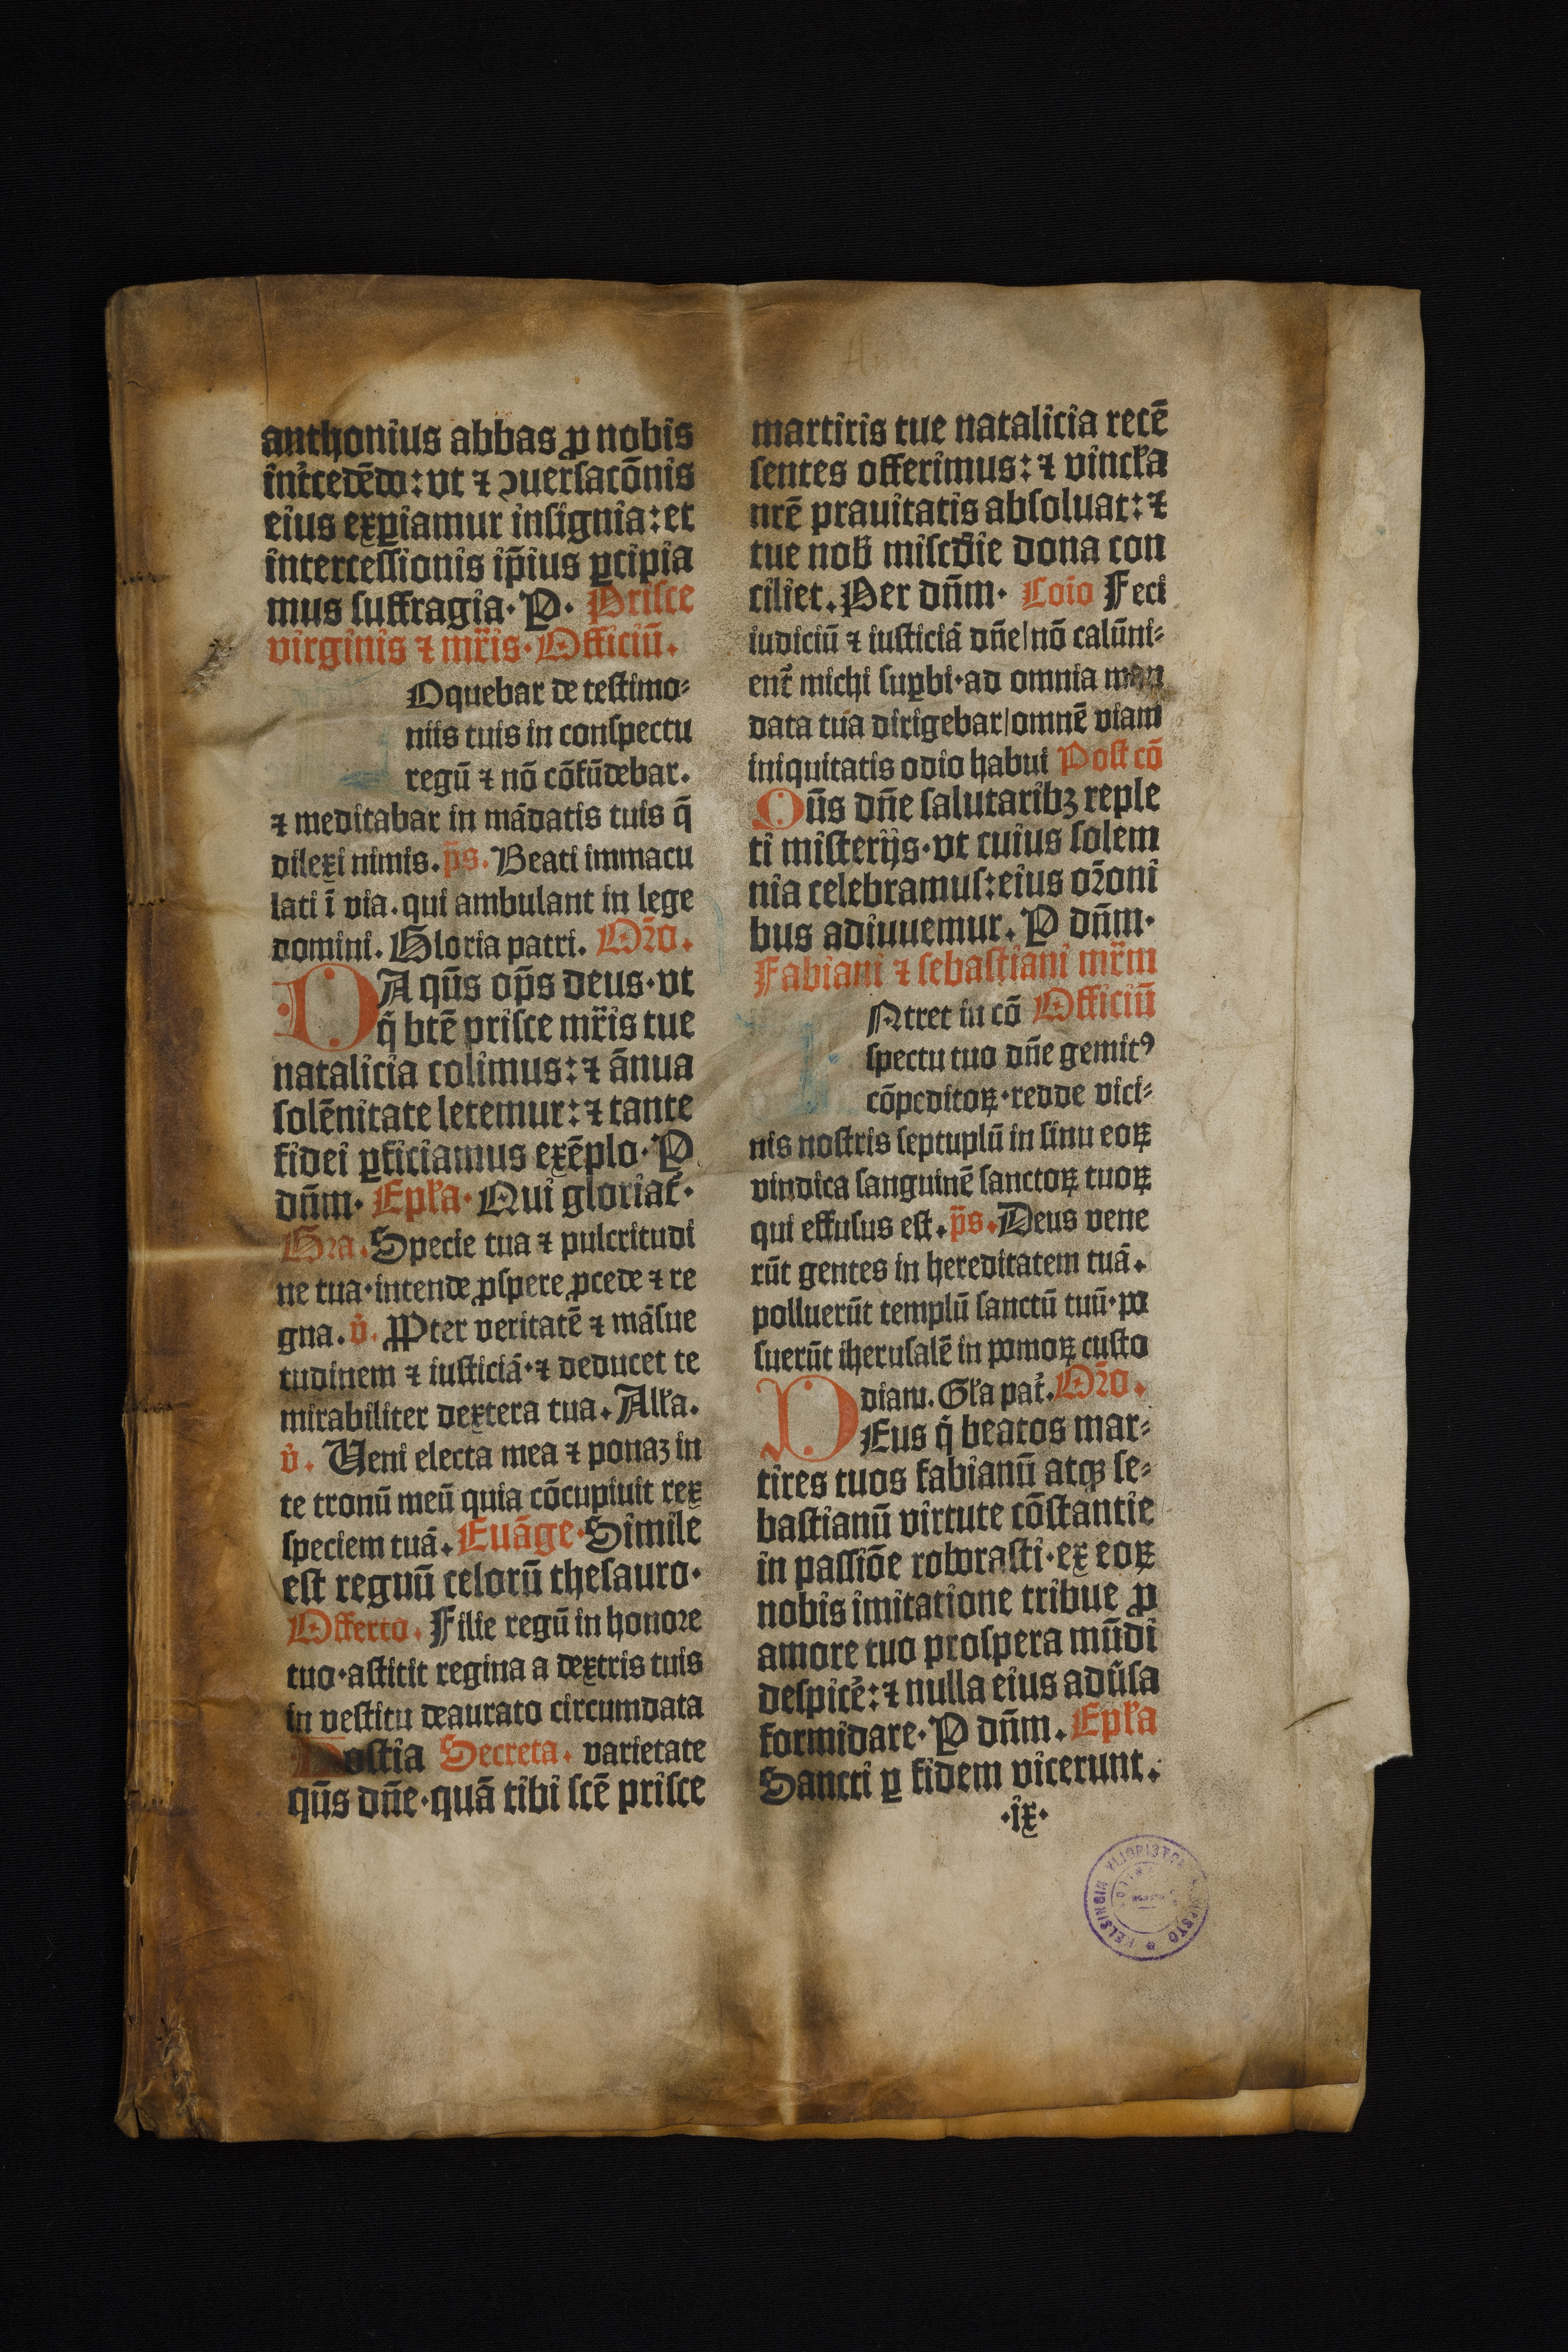 anthonius abbas ꝓ nobis
int̄cedēdo: vt ⁊ ꝯuersacōnis
eius exꝑiamur insignia: et
intercessionis ip̄ius ꝑcipia
mus suffragia. P. Prisce
virginis ⁊ mr̄is. Officiū.
Oquebar de testimo⸗
niis tuis in conspectu
regū ⁊ nō cōfūdebar.
⁊ meditabar in mādatis tuis q̄
dilexi nimis. p̄s. Beati immacu
lati ī via. qui ambulant in lege
domini. Gloria patri. Oꝛ̄o.
DA qūs op̄s deus. vt
q̇ btē prisce mr̄is tue
natalicia colimus: ⁊ ānua
solēnitate letemur: ⁊ tante
fidei ꝑficiamus exēplo. P
dn̄m. Epl̄a. Qui gloriat̄.
Gra. Specie tua ⁊ pulcritudi
ne tua. intende ꝓspere ꝓcede ⁊ re
gna. v̇. Ꝓpter veritatē ⁊ māsue
tudinem ⁊ iusticiā. ⁊ deducet te
mirabiliter dextera tua. All̄a.
v̇. Veni electa mea ⁊ ponaꝫ in
te tronū meū quia cōcupiuit rex
speciem tuā. Euāge. Simile
est regnū celorū thesauro.
Offerto. Filie regū in honoꝛe
tuo. astitit regina a dextris tuis
in vestitu deaurato circumdata
Hostia Secreta. varietate
qūs dn̄e. quā tibi scē prisce
martiris tue natalicia recē
sentes offerimus: ⁊ vincl̄a
nrē prauitatis absoluat: ⁊
tue nob̄ miscd̄ie dona con
ciliet. Per dn̄m. Coīo Feci
iudiciū ⁊ iusticiā dn̄e/nō calūni⸗
ent̄ michi suꝑbi. ad omnia man
data tua dirigebar/omnē viam
iniquitatis odio habui Post cō
Qūs dn̄e salutaribꝫ reple
ti misterijs. vt cuius solem
nia celebramus: eius oꝛ̄oni
bus adiuuemur. P dn̄m.
Fabiani ⁊ sebastiani mr̄m
Ntret in cō Officiū
spectu tuo dn̄e gemitꝰ
cōpeditoꝝ. redde vici⸗
nis nostris septuplū in sinu eoꝝ
vindica sanguinē sanctoꝝ tuoꝝ
qui effusus est. p̄s. Deus vene
rūt gentes in hereditatem tuā.
polluerūt templū sanctū tuū. po
suerūt iherusalē in pomoꝝ custo
diam. Gl̄a pat̄. Oꝛ̄o.
DEus q̇ beatos mar⸗
tires tuos fabianū atqꝫ se⸗
bastianū virtute cōstantie
in passiōe roborasti. ex eoꝝ
nobis imitatione tribue ꝓ
amore tuo prospera mūdi
despicē: ⁊ nulla eius adūsa
formidare. P dn̄m. Epl̄a
Sancti ꝑ fidem vicerunt.
.ix.
HELSINGIN YLIOPISTON